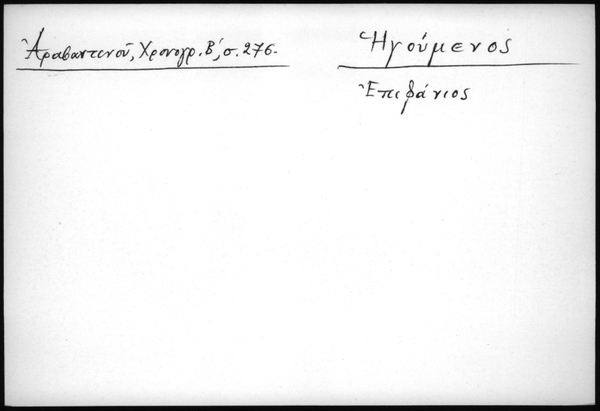 Ἀραβαντινοῦ, Χρονογρ. Β΄, σ. 276.
Ἡγούμενος
Ἐπιφάνιος